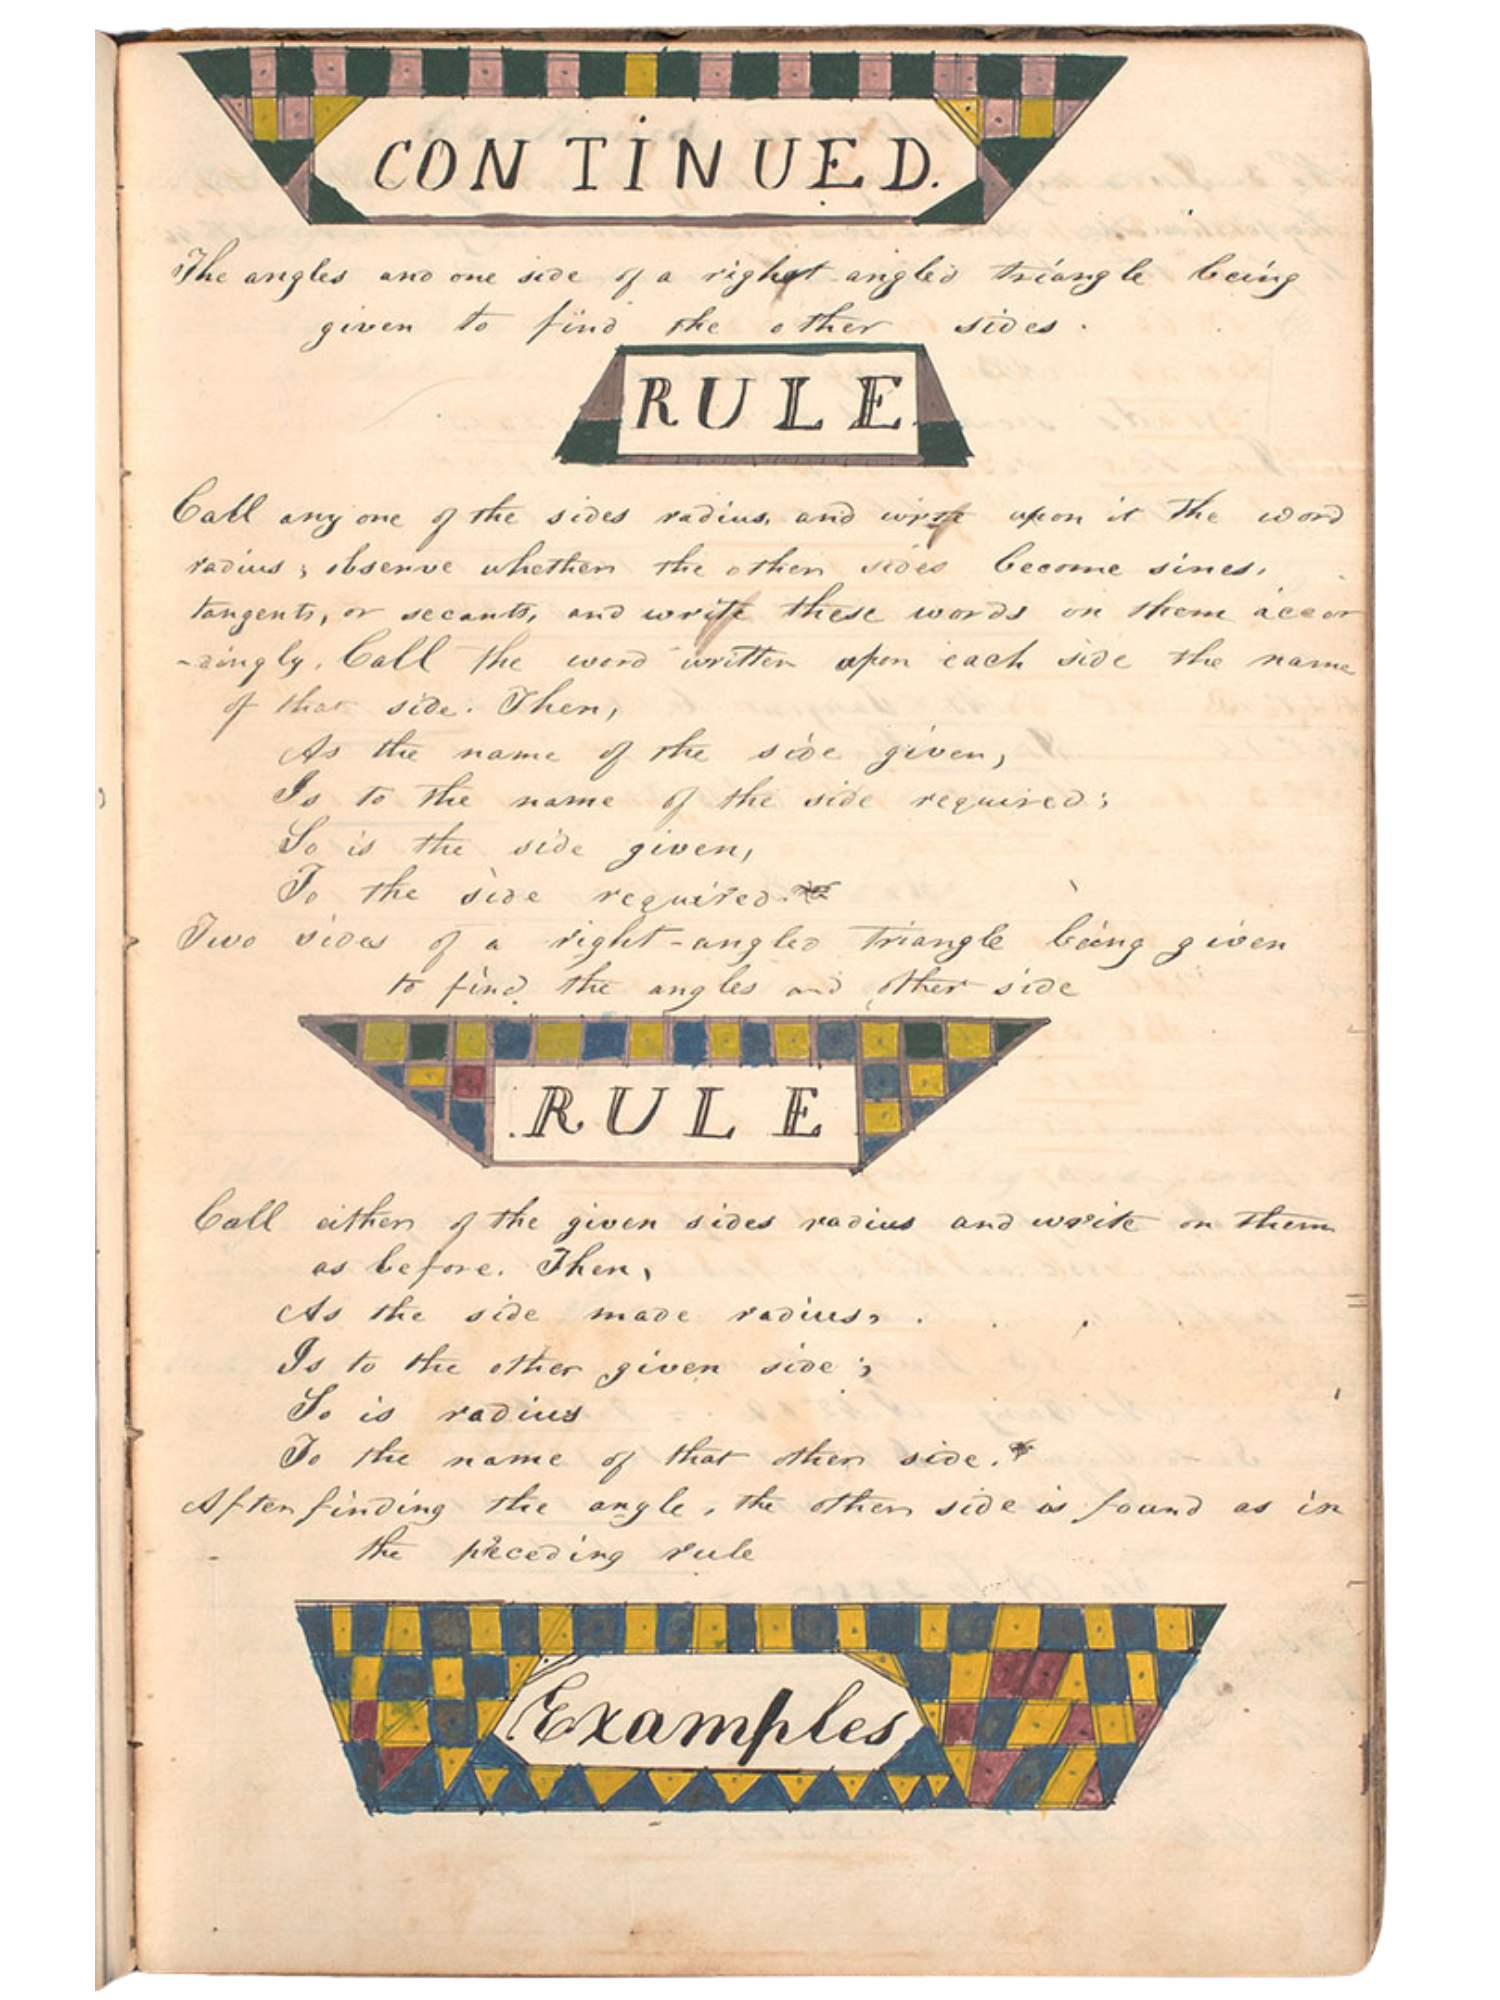 CONTINUED.
The angles and one side of a right angled triangle being
given to find the other sides.
RULE.
Call any one of the sides radius, and write upon it the word
radius; observe whether the other sides become sines,
tangents, or secants, and write these words on them accor
-dingly. Call the word written upon each side the name
of that side. Then,
As the name of the side given,
Is to the name of the side required;
So is the side given,
To the side required.
Two sides of a right-angled triangle being given
to find the angles and other side
RULE
Call either of the given sides radius and write on them
as before. Then,
As the side made radius,
Is to the other given side;
So is radius
To the name of that other side.*
After finding the angle, the other side is found as in
the preceding rule
Examples